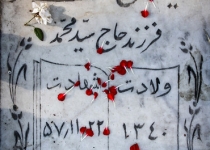 فرزند حاج سیّد محمّد
ولادت شهادت
۱۳۴۰ ۵۷/۱۱/۲۲